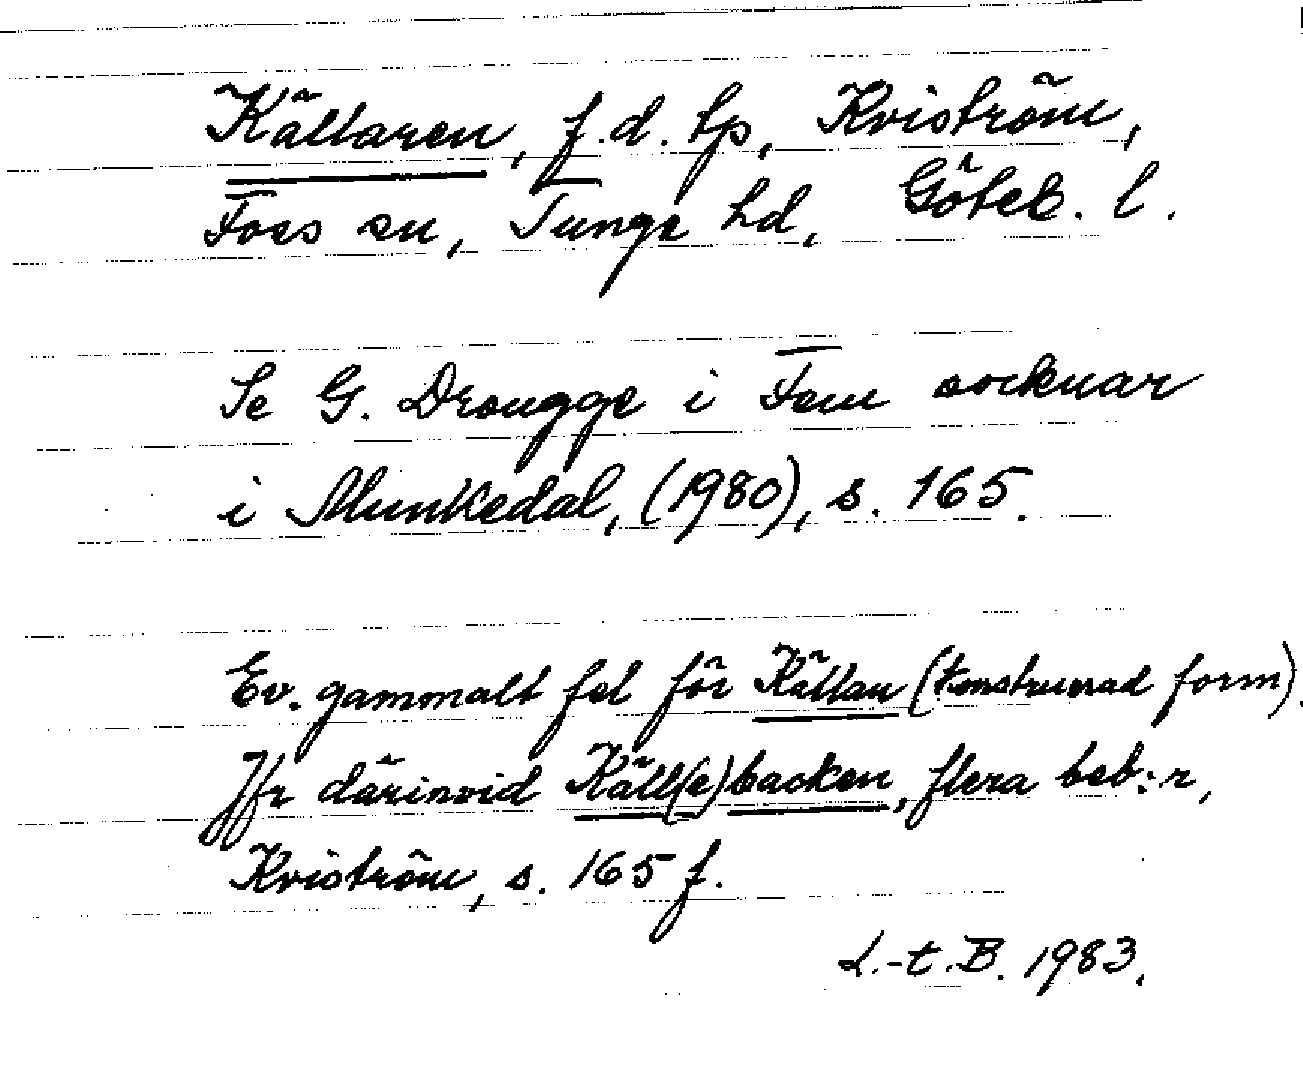 Källaren, f.d. tp, Kviström,
Foss sn, Tunge hd, Göteb. l.
Se G. Drougge i Fem socknar
i Munkedal, (1980), s. 165.
Ev. gammalt fel för Källan (konstruerad form).
Jfr därinvid Käll(e)backen, flera beb:r,
Kviström, s. 165 f.
L.-t. B. 1983.